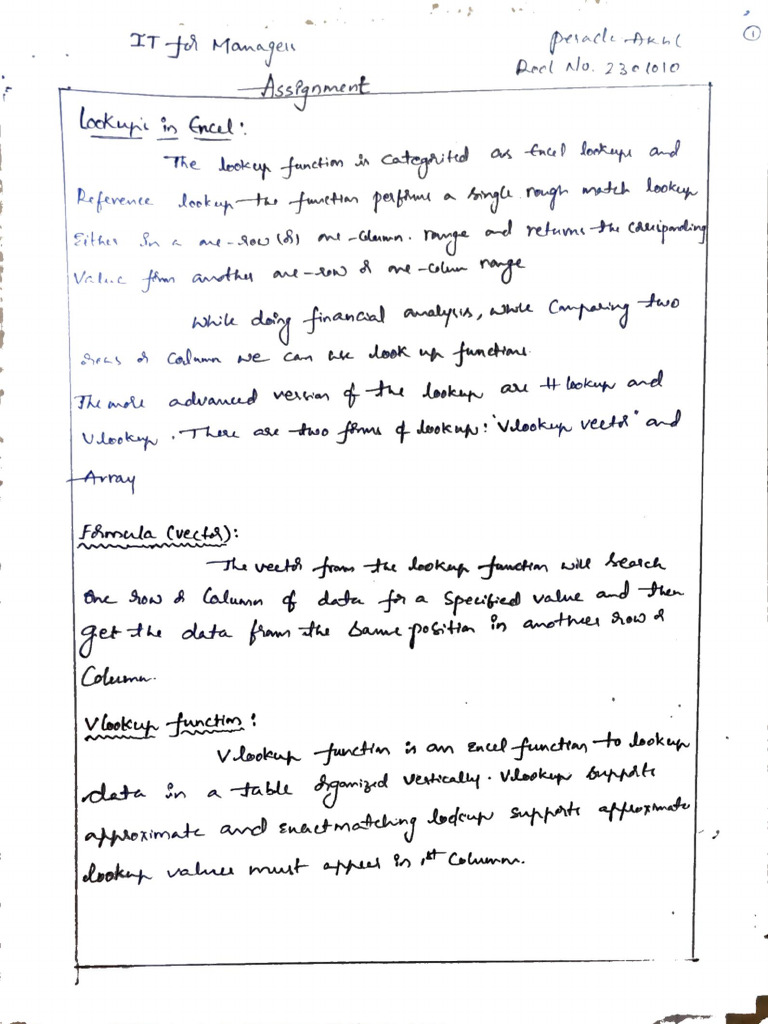 1
IT for Managers
Roll No. 2301010
Assignment
Lookups in Excel:
The lookup function is categorized as Excel lookups and
Reference lookup the function performs a single rough match lookup
Either in a one-row (or) one-column. range and returns the corresponding
Value from another one-row or one-column range
While doing financial analysis, while Comparing two
rows or Column we can use look up functions.
The more advanced version of the lookup are H lookup and
Vlookup. There are two forms of lookup: "Vlookup vector" and
Array
Formula (vector):
The vector from the lookup function will search
One row or Column of data for a specified value and then
get the data from the same position in another row or
Column.
Vlookup function:
Vlookup function is an Excel function to lookup
data in a table organized vertically. Vlookup supports
approximate and exact matching lookup supports approximate
lookup values must appear in 1st Column.